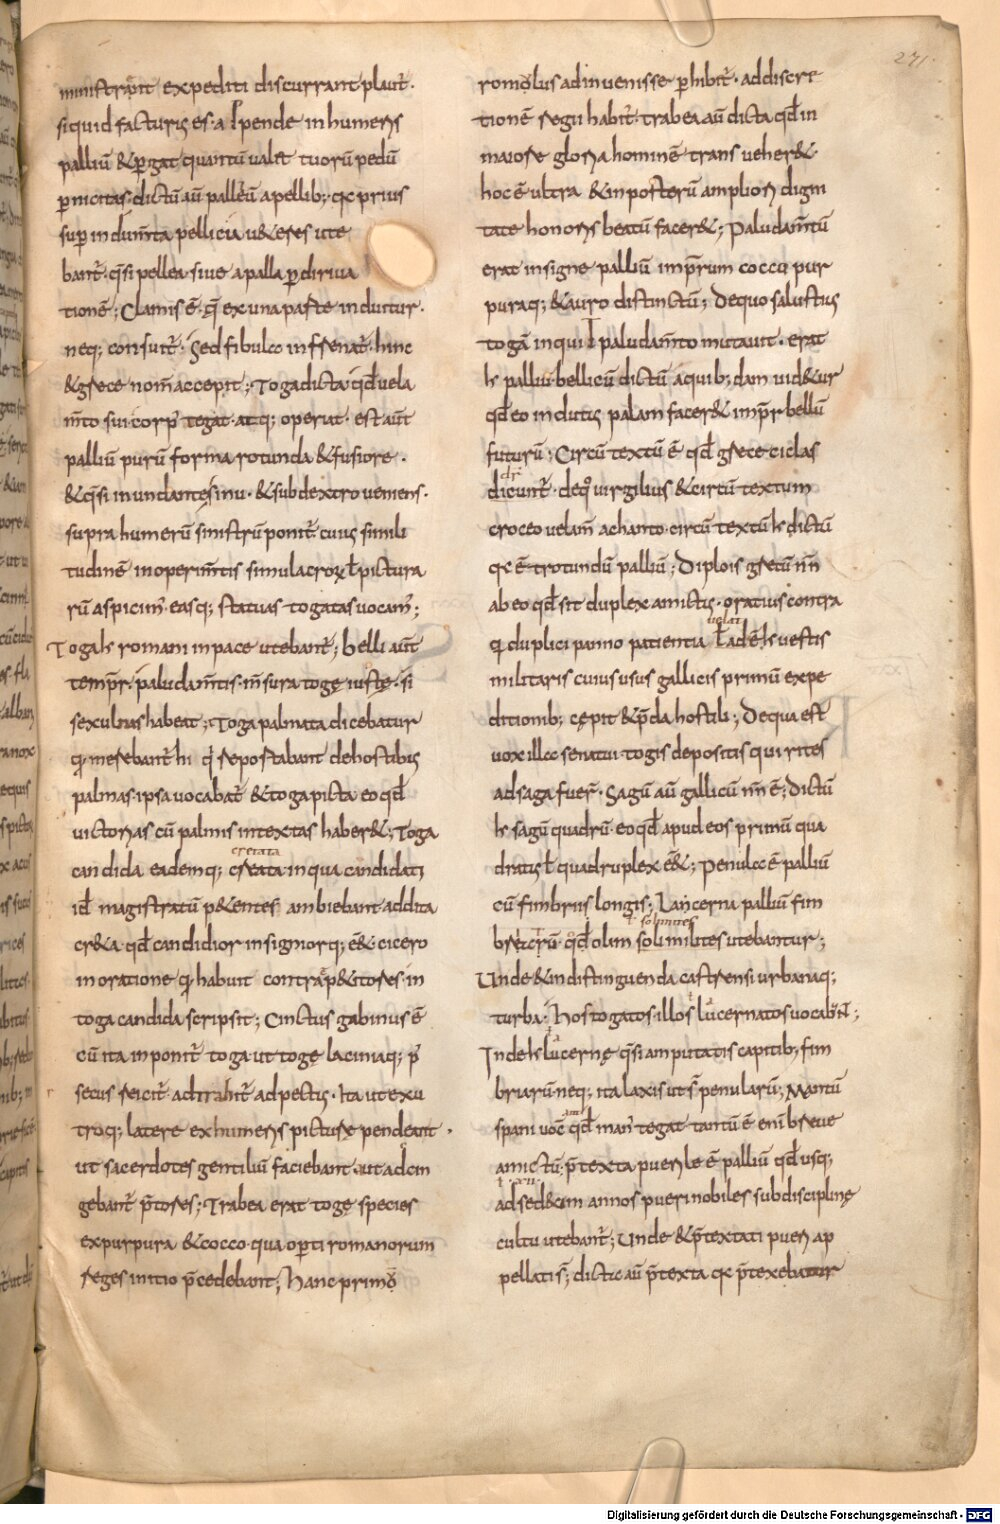 271.
ministrant expediti discurrant plaut̄.
siquid facturus es. a ꝑpende in humeris
palliū &ꝑgat quantū ualet tuorū pedū
ꝑnicitas. dictū aū palleū apellib; qꝫ prius
suꝑ indum̄ta pellicia u&eres ute
bant̄. q̄si pellea. siue apalla ꝑ diriua
tionē; Clamis ē. q̄ exuna parte induitur.
neq; consuit̄. Sed fibula infrenat̄. hinc
&grece nom̄ accepit; Toga dicta qd̄ uela
m̄to sui corp̄ tegat atq; operiat. est aūt
palliū purū forma rotunda &fusiore.
&q̄si inundante sinu. &sub dextro ueniens.
supra humerū sinistrū ponit̄. cuius simili
tudinē inoperim̄tis simulacrorū ł pictura
rū aspicim̄. easq; statuas togatas uocam̄;
Toga h romani inpace utebant̄; belli aūt
temp̄r. paludam̄tis. m̄sura togę iustę. si
sex ulnas habeat; Toga palmata dicebatur
qͣ merebant̄ hi qͥ reportabant dehostibus
palmas. ipsa uocabat̄ &toga picta eo qd̄
uictorias cū palmis intextas haber&; Toga
candida eademq; creata inqua candidati
cretata
id̄ magistratū p&entes ambiebant addita
cr&a qd̄ candidior insigniorq; ē& cicero
inoratione qͣ habuit contra p&itores. in
toga candida scripsit; Cinctus gabinus ē
cū ita inponit̄ toga ut togę laciniaq; p̄
secus reicit̄. adtrahit̄ ad pectus. Ita ut exu
troq; latere exhumeris picturę pendeant.
ut sacerdotes gentiliū faciebant. ut adcin
gebant̄ p̄tores; Trabea erat togę species
expurpura &cocco. qua oꝑti romanorum
reges initio p̄cedebant; Hanc primō
romolus adinuenisse ꝑhibit̄. addiscre
tionē regii habit̄. trabea aū dicta qd̄ in
maiore gloria hominē transueher&.
hoc ē ultra &inposterū ampliori digni
tate honoris beatū facer&; Paludam̄tū
erat insigne palliū imp̄rum cocco pur
puraq; &auro distinctū; Dequo salustius
togā inquid paludam̄to mutauit. erat
h palliū bellicū dictū aquib;dam uid&ur
qd̄ eo indutus palam facer& imp̄r bellū
futurū; Circūtextū ē qd̄ grece ciclas
dr̄
dicunt̄. deqͦ uirgilius &circūtextum
croceo uelam̄ achanto. circūtextū h dictū
qꝫ ē rotundū palliū; Diplois gretū nn̄
ab eo qd̄ sit duplex amictus. oratius contra
qͣ duplici panno patientia uelat
ł adē h uestis
militaris cuius usus gallicis primū expe
ditionib; cępit &p̄da hostili; Dequa est
uox illa senatui. togis depositis quirites
adsaga fuer̄. Sagū aū gallicū nn̄ ē; Dictū
h sagū quadrū. eo qd̄ apud eos primū qua
dratus ł quadruplex ē&; Penula ē palliū
cū fimbriis longis; Lacerna palliū fim
briatū. qd̄ olim soli milites utebantur;
Unde &indistinguenda castrensi urbanaq;
turba. hos togatos. illos lucernatos uocab̄;
Inde h lucernę q̄si amputatis capitib; fim
briarū. neq; ita laxis ut s̄ penularū; Mantū
spani uoc̄ qd̄ man̄ tegat tantū ē enī breue
amictū; p̄texta puerile ē palliū qd̄ usq;
ad sed&im annos pueri nobiles sub disciplinę
cultu utebant̄; Unde &p̄textati pueri ap
pellati s̄; dicta aū p̄texta qꝫ p̄texebatur
Digitalisierung gefördert durch die Deutsche Forschungsgemeinschaft - DFG